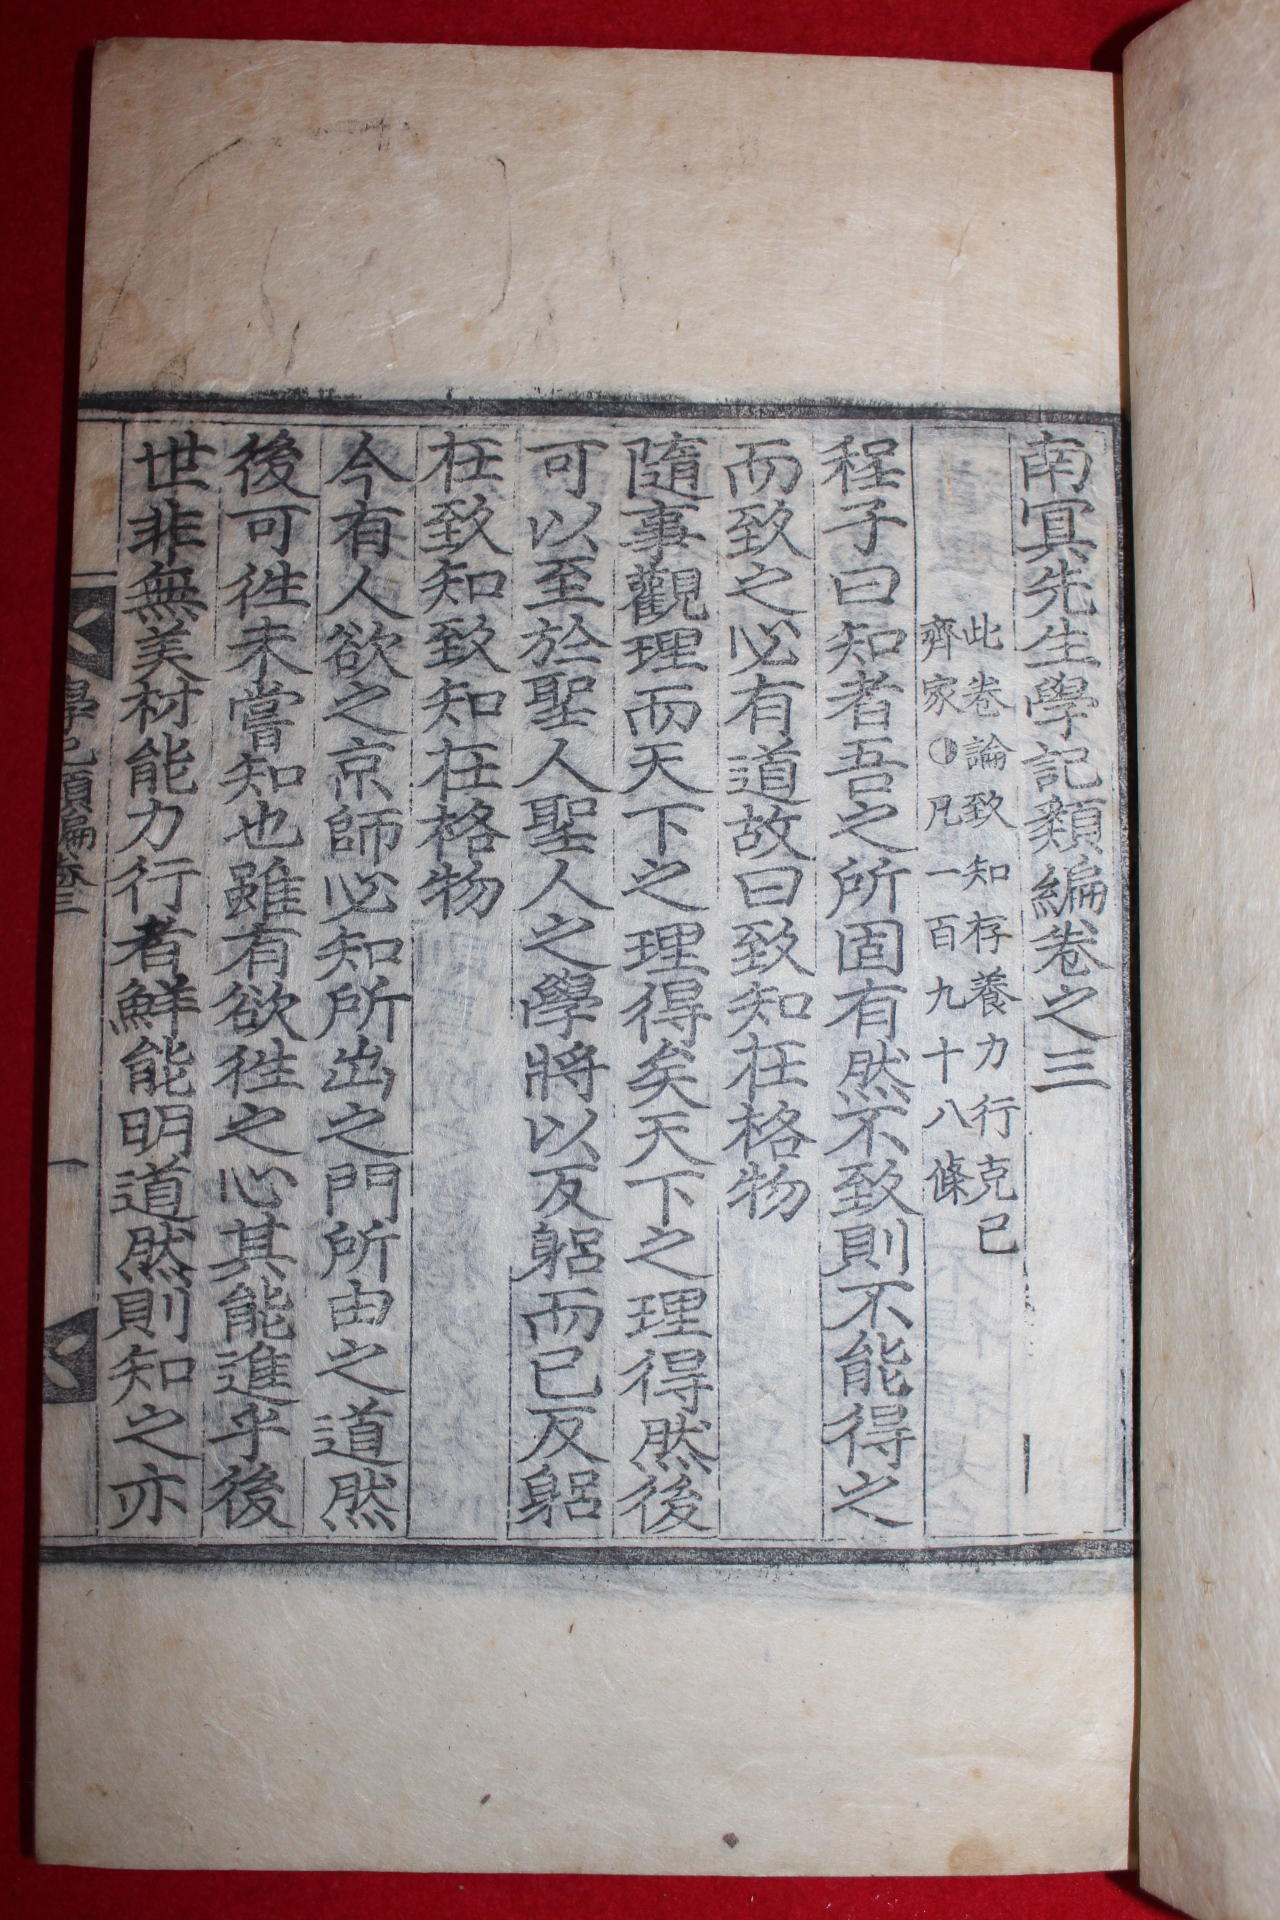 南冥先生學記類編卷之三
此卷論致知存養力行克己
齊家◑凡一百九十八條
程子曰知者吾之所固有然不致則不能得之
而致之必有道故曰致知在格物
隨事觀理而天下之理得矣天下之理得然後
可以至於聖人聖人之學將以反躬而已反躬
在致知致知在格物
今有人欲之京師必知所出之門所由之道然
後可徃未嘗知也雖有欲徃之心其能進乎後
世非無美材能力行者鮮能明道然則知之亦
學記類編卷三
一